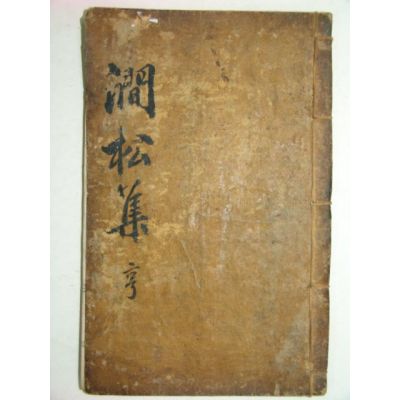 澗松集
亨